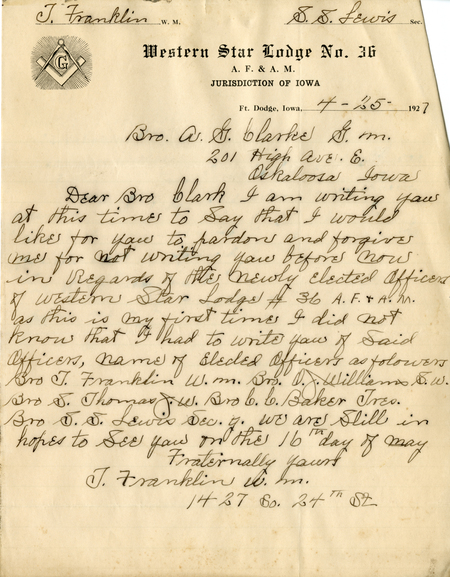 T. Franklin W. M. S. S. Lewis Sec.
G
Western Star Lodge No. 36
A. F. & A. M.
JURISDICTION OF IOWA
Ft. Dodge, Iowa, 4-25-1927
Bro. A. G. Clarke G. m.
201 High Ave. E.
Oskaloosa Iowa
Dear Bro Clark I am writing yaw
at this time to Say that I would
like for yaw to pardon and forgive
me for not writing yaw before now
in Regards of the newly Elected Officers
of Western Star Lodge # 36 A.F. & A.M.
as this is my first time I did not
know that I had to write yaw of Said
Officers, name of Elected Officers as folowers
Bro T. Franklin W. m. Bro. O. J. Williams S. w.
Bro S. Thomas J. w. Bro C. C. Baker Tres.
Bro. S. S. Lewis Sec. y. we are Still in
hopes to See yaw on the 16th day of may
Fraternally yaws
T. Franklin W. m.
1427 So. 24th St